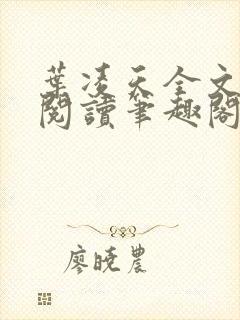 葉凌天全文
閱讀筆趣閣
廖曉農